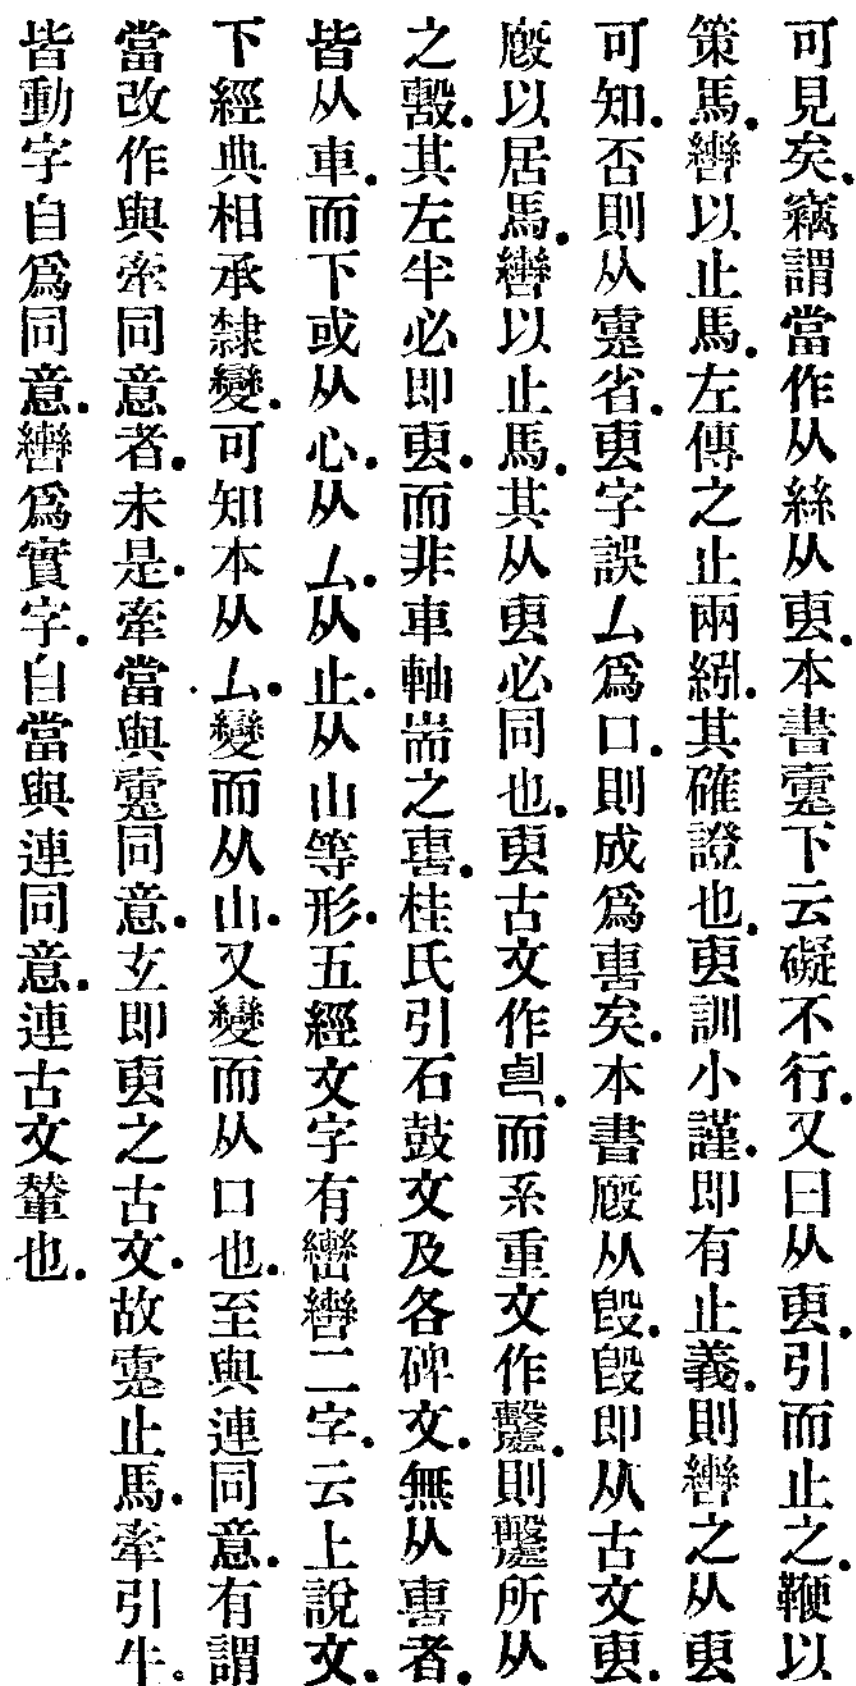 可見矣.竊謂當作从絲从叀.本書疐下云礙不行.又曰从叀.引而止之.鞭以
策馬.轡以止馬.左傳之止兩紖.其確證也.叀訓小謹.即有止義.則轡之从叀
可知.否則从疐省.叀字誤厶爲口.則成爲軎矣.本書廏从㲃.㲃即从古文叀.
廏以居馬.轡以止馬.其从叀必同也.叀古文作𠧋.而系重文作𣫦.則𣫦所从
之毄.其左半必即叀.而非車軸耑之軎.桂氏引石鼓文及各碑文.無从軎者.
皆从車.而下或从心.从厶.从止.从山等形.五經文字有轡轡二字.云上說文.
下經典相承隸變.可知本从厶.變而从山.又變而从口也.至與連同意.有謂
當改作與牽同意者.未是.牽當與疐同意.玄即叀之古文.故疐止馬.牽引牛.
皆動字自爲同意.轡爲實字.自當與連同意.連古文輦也.